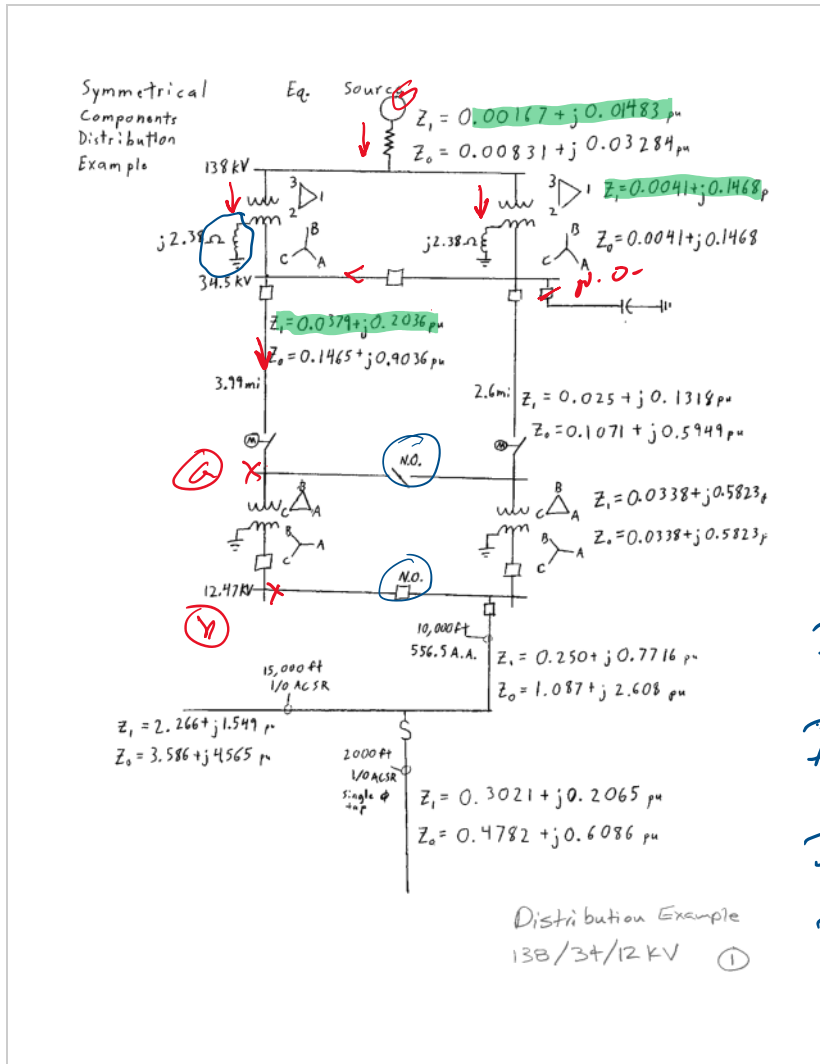 Symmetrical Eq. Source
Components
Distribution
Example
Z₁ = 0.00167 + j0.01483 pu
Z₀ = 0.00831 + j0.03284 pu
138 kV
3 1
2
3 1
2
Z₁=0.0041+j0.1468 p
j2.38Ω
B
C A
j2.38Ω
B
C A
Z₀=0.0041+j0.1468
34.5 kV
N.O.
Z₁=0.0379+j0.2036 pu
Z₀=0.1465+j0.9036 pu
3.99mi
2.6mi
Z₁ = 0.025 + j0.1318 pu
Z₀ = 0.1071 + j0.5949 pu
M
M
G X
N.O.
B
C A
B
C A
Z₁=0.0338+j0.5823 p
B
A
C
B
A
C
Z₀=0.0338+j0.5823 p
12.47KV X
N.O.
10,000ft
556.5 A.A.
Z₁ = 0.250 + j0.7716 pu
Z₀ = 1.087 + j2.608 pu
15,000ft
1/0 ACSR
Z₁ = 2.266 + j1.549 pu
Z₀ = 3.586 + j4565 pu
S
2000ft
1/0 ACSR
Single φ
tap
Z₁ = 0.3021 + j0.2065 pu
Z₀ = 0.4782 + j0.6086 pu
Distribution Example
138/34/12 KV 1